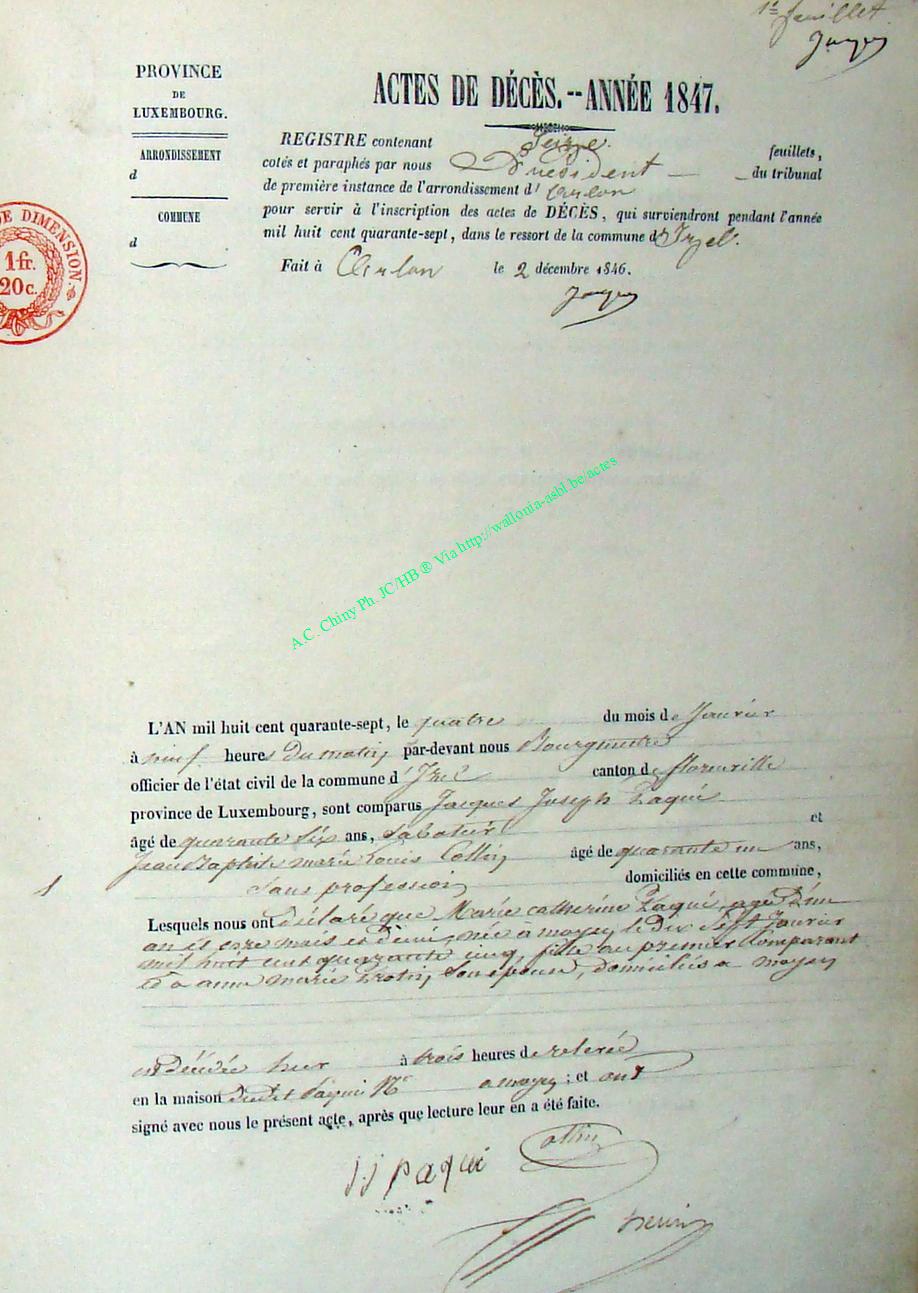 1er feuillet
PROVINCE
DE
LUXEMBOURG.
ARRONDISSEMENT
d
COMMUNE
d
DE DIMENSION
1 fr.
20 c.
ACTES DE DÉCÈS.--ANNÉE 1847.
REGISTRE contenant Seize feuillets,
cotés et paraphés par nous Président du tribunal
de première instance de l'arrondissement d'Arlon
pour servir à l'inscription des actes de DÉCÈS, qui surviendront pendant l'année
mil huit cent quarante-sept, dans le ressort de la commune d'Izel.
Fait à Arlon le 2 décembre 1846.
A.C. Chiny Ph. JC/HB ® Via http://wallonia-asbl.be/actes
L'AN mil huit cent quarante-sept, le quatre du mois de Janvier
à neuf heures du matin, par-devant nous Bourgmestre
officier de l'état civil de la commune d'Izel canton de florenville
province de Luxembourg, sont comparus Jacques Joseph Paqué
âgé de quarante six ans, Sabotier et
Jean Baptiste marie Louis Collin, âgé de quarante un ans,
1
Sans profession, domiciliés en cette commune,
Lesquels nous ont déclaré que Marie catherine Paqué, agée d'un
an et onze mois et demi, née a moyen, le dix Sept Janvier
mil huit cent quarante cinq, fille au premier Comparant
et a anne marie Protin, Son épouse, domiciliés a moyen
est décédée hier à trois heures de relevée
en la maison dudit Paqué a moyen; et ont
signé avec nous le présent acte, après que lecture leur en a été faite.
JJ paqué Collin
henin